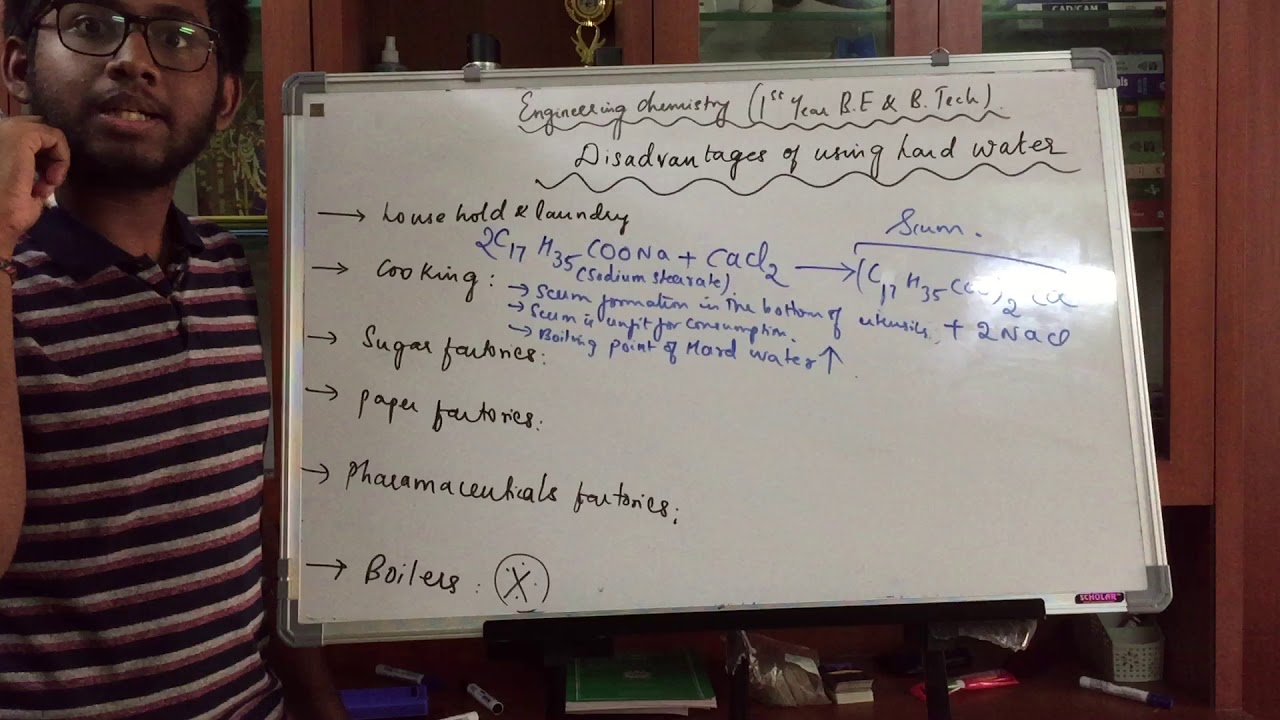 CAD/CAM
Engineering chemistry (1st Year B.E & B.Tech).
Disadvantages of using hard water
→ household & laundry
2C17H35COONa + CaCl2 → (C17H35COO)2 Ca + 2NaCl
Scum.
(Sodium stearate)
→ Cooking:
→ Scum formation in the bottom of utensils.
→ Scum is unfit for consumption.
→ Boiling point of Hard water ↑
→ Sugar factories:
→ paper factories:
→ Pharamaceuticals factories:
→ Boilers: X
SCHOLAR